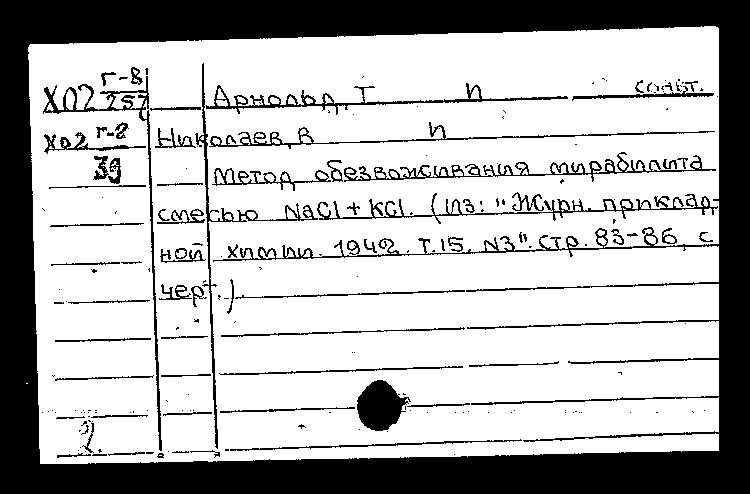 Х02 Г-8/257 Арнольд, Т п соавт.
Х02 Г-2/39 Николаев, В п
Метод обезвоживания мирабилита
смесью NaCl + KCl. (Из: "Журн. приклад-
ной химии. 1942. Т.15. N3". Стр. 83-86, с
черт.)
2.